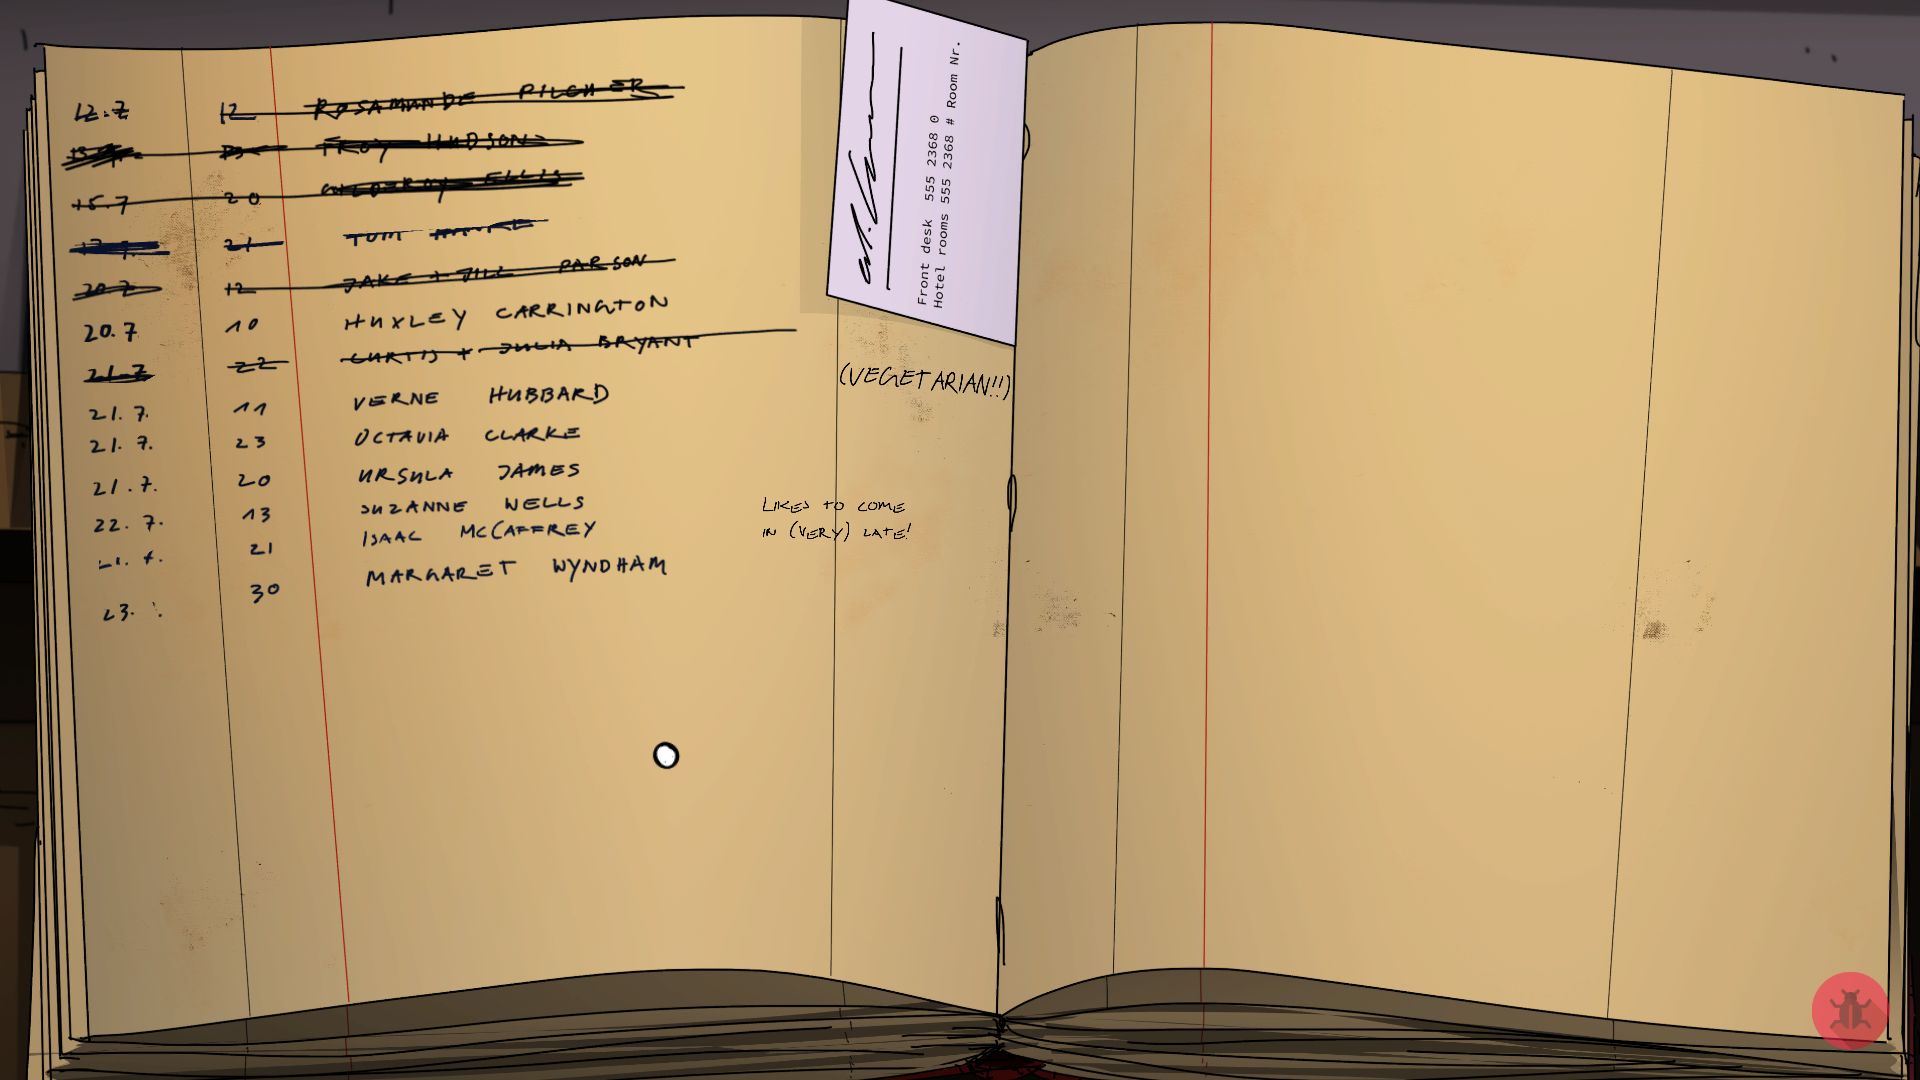 12.7 12 ROSAMUNDE PILCHER
TROY HUDSON
15.7 20 ELLIS
21 TOM
20.7 12 JAKE + JILL PARSON
20.7 10 HUXLEY CARRINGTON
21.7 22 CURTIS + JULIA BRYANT
21.7. 11 VERNE HUBBARD (VEGETARIAN!!)
21.7. 23 OCTAVIA CLARKE
21.7. 20 URSULA JAMES
22.7. 13 SUZANNE WELLS LIKES TO COME
21 ISAAC MCCAFFREY IN (VERY) LATE!
23. 30 MARGARET WYNDHAM
Front desk 555 2368 0
Hotel rooms 555 2368 # Room Nr.